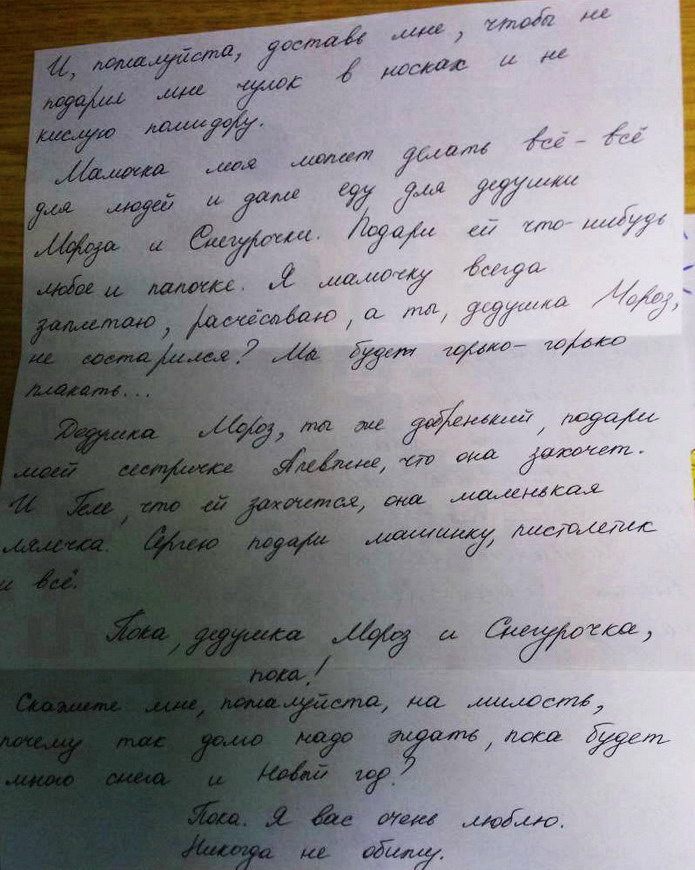 И, пожалуйста, доставь мне, чтобы не
подарил мне чулок в носках и не
кислую помидору.
Мамочка моя может делать всё-всё
для людей и даже еду для дедушки
Мороза и Снегурочки. Подари ей что-нибудь
любое и папочке. Я мамочку всегда
заплетаю, расчёсываю, а ты, дедушка Мороз,
не состарился? Мы будем горько-горько
плакать...
Дедушка Мороз, ты же добренький, подари
моей сестричке Алевтине, что она захочет.
И Геле, что ей захочется, она маленькая
лялечка. Сергею подари машинку, пистолетик
и всё.
Пока, дедушка Мороз и Снегурочка,
пока!
Скажите мне, пожалуйста, на милость,
почему так долго надо ждать, пока будет
много снега и Новый год?
Пока. Я вас очень люблю.
Никогда не обижу.